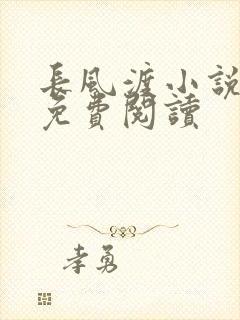 長風渡小說
免費閱讀
李勇